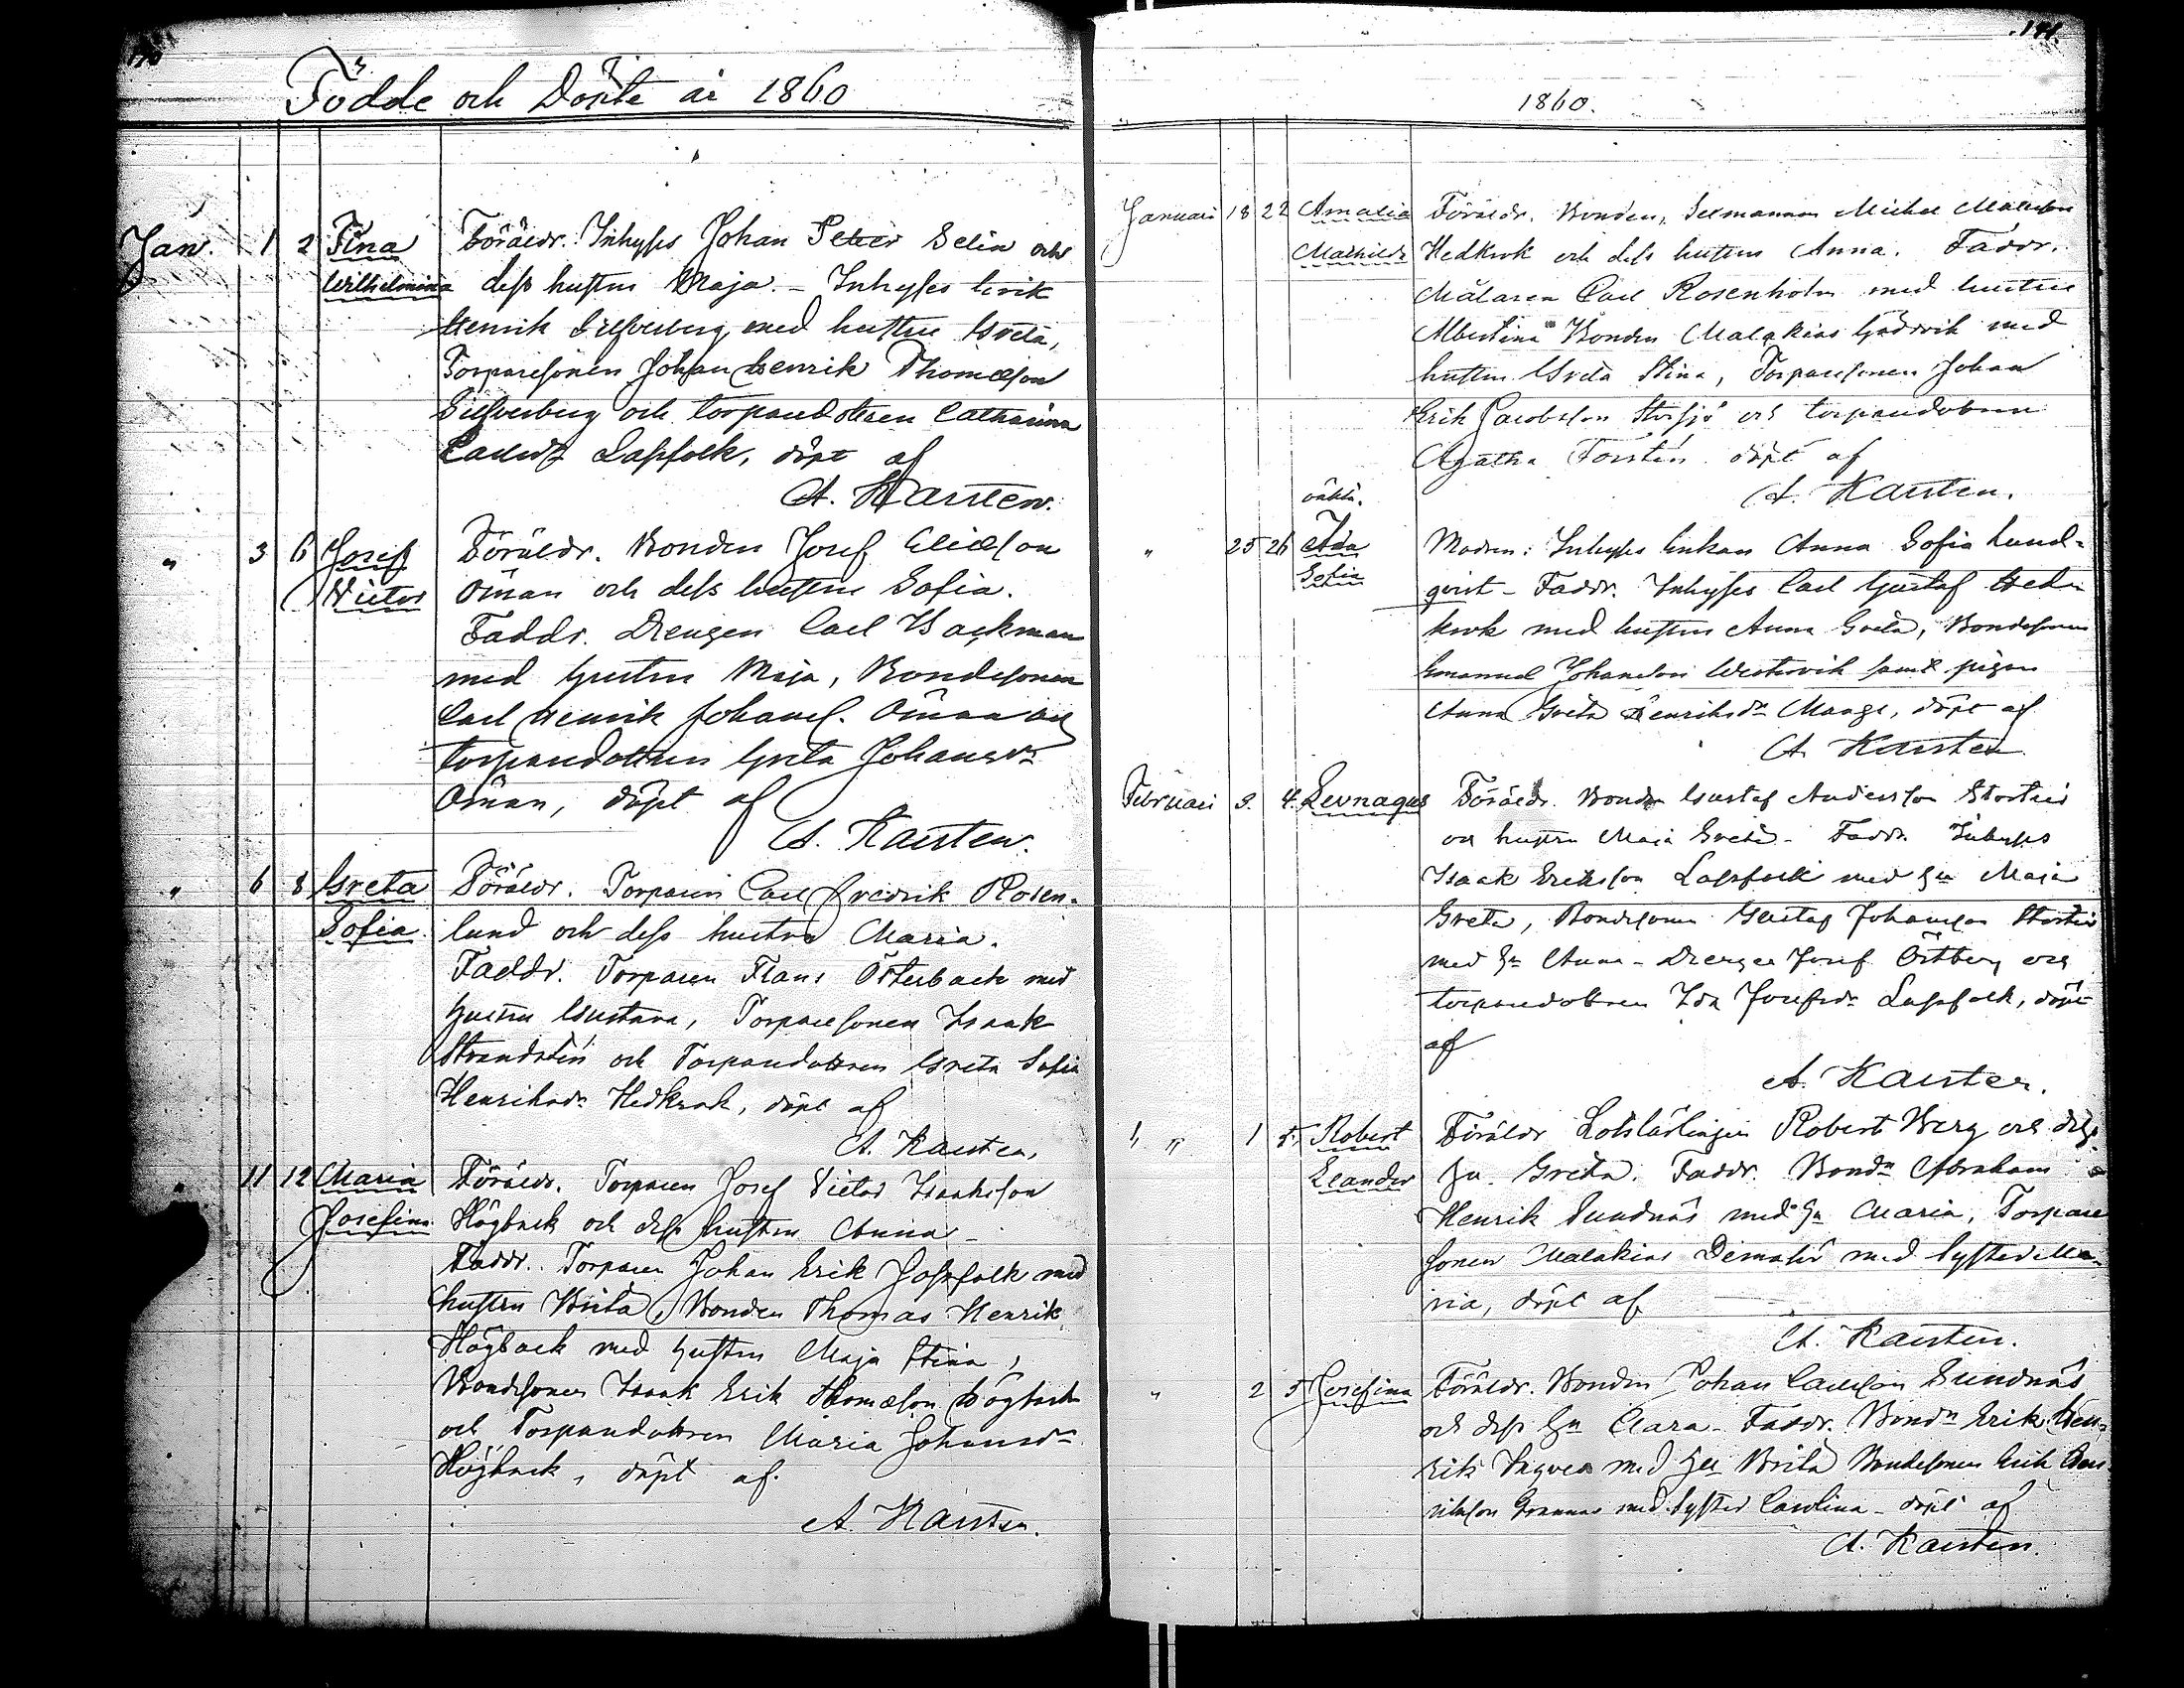 Födde och Döpte år 1860
Jan. 1 2 Fina Föräldr. Inhyses Johan Peter Selin och
Wilhelmina dess hustru Maja. – Inhyses Erik
Henrik Silfverberg med hustru Greta,
Torparesonen Johan Henrik Thomasson
Silfverberg och torparedottren Catharina
Lassfolk, döpt af
A. Karsten.
" 3 6 Josef Föräldr. Bonden Josef Eliasson
Victor Öman och dess hustru Sofia.
Faddr. Drengen Carl Backman
med hustru Maja, Bondesonen
Carl Henrik Johans. Öman och
torparedottren Greta Johansdr
Öman, döpt af
A. Karsten.
" 6 8 Greta Föräldr. Torparen Carl Fredrik Rosen-
Sofia. lund och dess hustru Maria.
Faddr. Torparen Frans Österback med
hustru Gustava, Torparesonen Isaak
Strandstén och Torparedottren Greta Sofia
Henriksdr Hedkrok, döpt af
A. Karsten.
" 11 12 Maria Föräldr. Torparen Josef Victor Isaksson
Josefina Högback och dess hustru Anna –
Faddr. Torparen Johan Erik Josfolk med
hustru Brita, Bonden Thomas Henrik
Högback med hustru Maja Stina,
Bondesonen Isaak Erik Thomasson Högback
och Torparedottren Maria Johansdr
Högback, döpt af.
A. Karsten.
1860.
Januari 18 22 Amalia Föräldr. Bonden, Michel
Mathilda Hedkrok och dess hustru Anna. Faddr.
Målaren Carl Rosenholm med hustru
Albertina Bonden Malakias med
hustru Greta Stina, Torparesonen Johan
Erik Jacobsson Storsjö och torparedottren
Agatha Forstén döpt af
A. Karsten.
oäkta.
" 25 26 Ida Modren: Inhyses Enkan Anna Sofia Lund-
Sofia qvist – Faddr. Inhyses Carl Gustaf Hed-
krok med hustru Anna Greta, Bondesonen
Emanuel Johansson Westervik samt pigan
Anna Greta Henriksdr Mange, döpt af
A. Karsten
Februari 3. 4. Föräldr. Bonden Gustaf Andersson
och hustru Maja Greta – Faddr. Inhyses
Isaak Eriksson Lassfolk med hu Maja
Greta, Bondesonen Gustaf Johansson
med hu Anna – Drengen Josef Östberg och
torparedottren Ida Josefsdr Lassfolk, döpt
af
A. Karsten.
" " 1 5. Robert Föräldr Lotslärlingen Robert Berg och dess
Leander hu. Greta. Faddr. Bondn Abraham
Henrik Sundnäs med hu Maria, Torpare
sonen Malakias med syster Ma-
ria, döpt af
A. Karsten.
" 2 5 Josefina Föräldr. Bonden Johan Carlsson Sundnäs
och dess hu Clara – Faddr. Bondn Erik Hen-
riks Ingves med hu Brita Bondesonen Erik Hen-
riksson med syster Carolina – döpt af
A. Karsten.